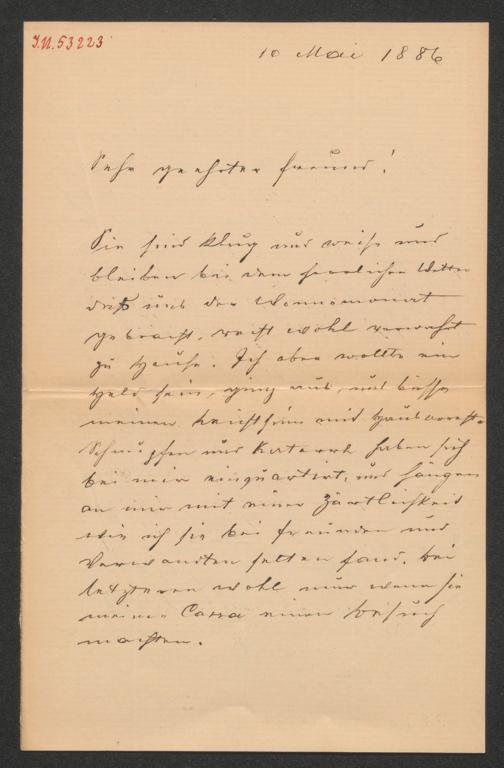 J.N. 53223
10 Mai 1886
Sehr geehrter Freund!
Sie sind klug und weise und
bleiben bei dem herrlichen Wetter
daß uns der Wonnemonat
gebracht, recht wohl verwahrt
zu Hause. Ich aber wollte ein
Held sein, ging aus, und büsse
meinen Leichtsinn mit Hausarrest.
Schnupfen und Katarrh haben sich
bei mir einquartirt, und hängen
an mir mit einer Zärtlichkeit
wie ich sie bei Freunden und
Verwandten selten fand. bei
letzteren wohl nur wenn sie
meiner Cassa einen Besuch
machten.